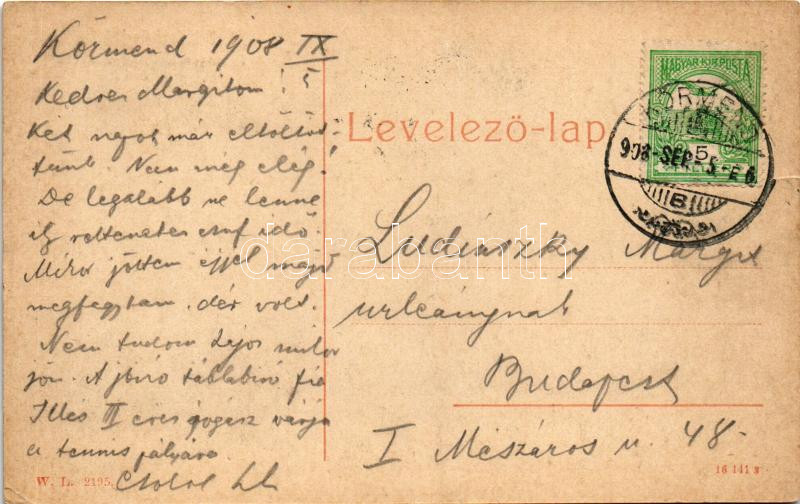 Körmend 1908 IX
5
Kedves Margitom!
Két napot már eltöltöt-
tünk. Nem még elég!
De legalább ne lenne
ily rettenetes csuf idő.
Mikor jöttem éjjel majd
megfagytam. dér volt.
Nem tudom Lajos mikor
jön. A jbiró táblabiró fia
Illés III éves jogász várja
a tennis pályára.
Levelező-lap
MAGYAR KIR. POSTA
KÖRMEND
908 SEP. 5
B
Ludinszky Margit
urleánynak
Budapest
I Mészáros u. 48.
W. L. 2195.
16 141
darabanth